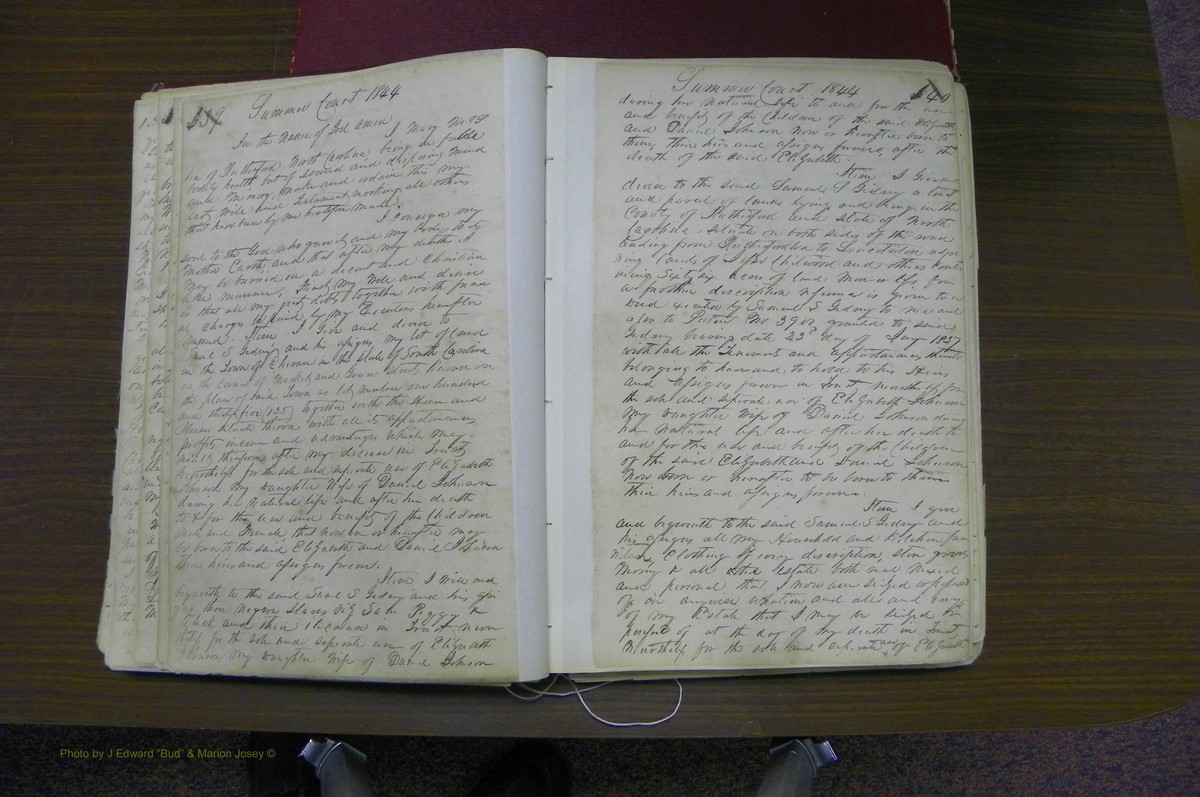 139 Summer Court 1844
In the name of God Amen
I Mary McD
of Rutherford North Carolina being in feeble
bodily health but of sound and disposing mind
and Memory, make and ordain this my
last Will and Testament revoking all others
that have been by me heretofore made.
I consign my
soul to the God who gave it and my body to its
Mother Earth, and that after my death I
may be buried in a decent and Christian
like manner, my Will and desire
is that all my just debts together with funeral
charges be paid by my Executors hereafter
named. Item I Give and devise to
Samuel S Gidney and his assigns, my lot of land
in the Town of Cheraw in the State of South Carolina
in the plan of said Town as lot number one hundred
and thirty five (135) together with the House and
situate thereon with all its appurtenances
profits income and advantages which may
result therefrom after my decease in Trust
nevertheless for the sole and seperate use of Elizabeth
Johnson my daughter Wife of Daniel Johnson
during her Natural life and after her death
to & for the use and benefit of the Children
male and Female, that now or hereafter may
be born to the said Elizabeth and Daniel Johnson
their heirs and assigns forever.
Item I will and
bequeath to the said Saml S Gidney and his
Negro slaves Viz Peggy &
and their increase in Trust never
theless for the sole and seperate use of Elizabeth
Johnson my daughter Wife of Daniel Johnson
Summer Court 1844 140
during her natural life to and for the use
and benefit of the Children of the said Elizabeth
and Daniel Johnson now or hereafter born to
them, their heirs and assigns forever, after the
death of the said Elizabeth.
Item I Give and
devise to the said Samuel S Gidney a tract
and parcel of land lying and being in the
County of Rutherford and State of North
Carolina situate on both sides of the road
leading from Rutherfordton to Lincolnton adjoi
ning lands of and others Conta
ining Sixty six Acres of land More or less, for
a further description reference is given to a
deed executed by Samuel S Gidney to me and
also to Patent No 3900 granted to said
Gidney bearing date 23d day of 1837
with all the Tenements and appurtenances thereto
belonging to have and to hold to his Heirs
and assigns forever in Trust nevertheless for
the sole and seperate use of Elizabeth Johnson
my daughter Wife of Daniel Johnson during
her Natural life and after her death to
and for the use and benefit of the Children
of the said Elizabeth and Daniel Johnson
now born or hereafter to be born to them
their heirs and assigns forever.
Item I give
and bequeath to the said Samuel S Gidney and
his assigns all my Household and Kitchen fur
niture, Clothing of every description
Money & all other Estate both real Mixed
and personal that I now am seized or possessed
of in anywise and all and every
of my Estate that I may be seized or
possessed of at the day of my death in Trust
Nevertheless for the sole and seperate use of Elizabeth
Photo by J Edward "Bud" & Marion Josey ©